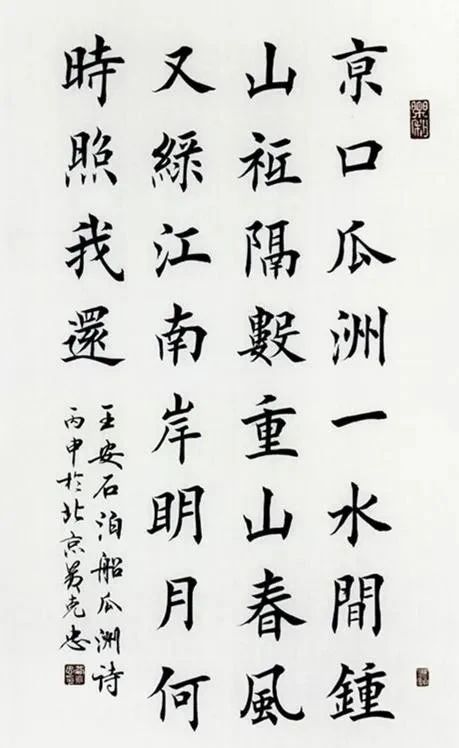 京口瓜洲一水間鍾
山祗隔數重山春風
又綠江南岸明月何
時照我還
王安石泊船瓜洲詩
丙申於北京克忠